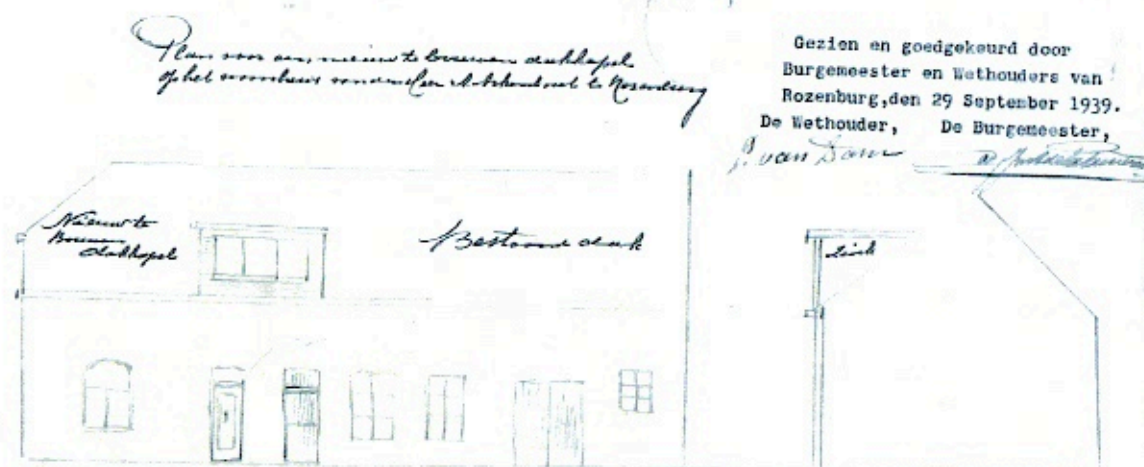 Plan voor een nieuw te bouwen dakkapel
op het woonhuis van den Heer te Rozenburg
Gezien en goedgekeurd door
Burgemeester en Wethouders van
Rozenburg,den 29 September 1939.
De Wethouder, De Burgemeester,
P. van Dam
Nieuw te
Bouwen
dakkapel
Bestaand dak
Zink